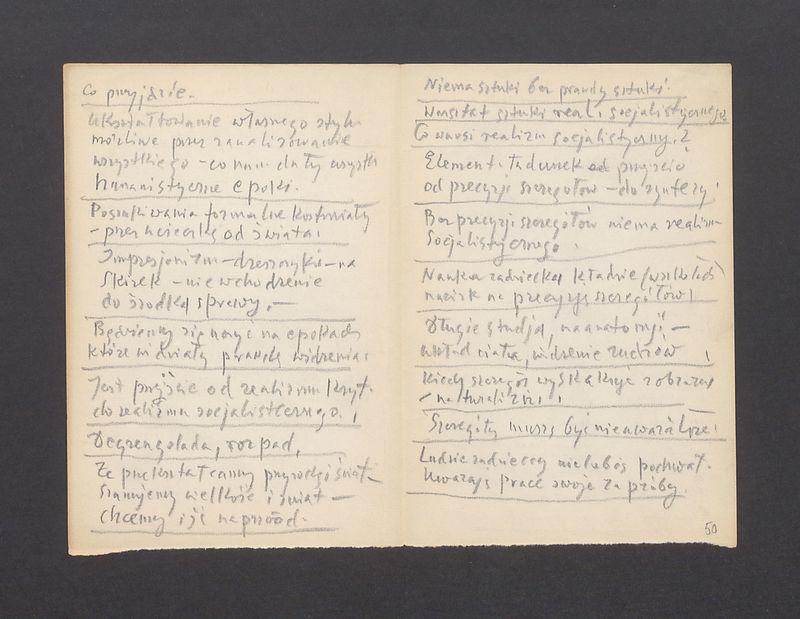 Co przyjdzie.
Ukształtowanie własnego stylu
możliwe przez zanalizowanie
wszystkiego – co nam dały wszystk
humanistyczne epoki.
Poszukiwania formalne kosztowały
– przez ucieczkę od świata!
Impresjonizm – dreszczyki – na
skórek – nie wchodzenie
do środka sprawy, –
Będziemy się uczyć na epokach
które widziały prawdę widzenia!
Jest przejście od realizmu kryt.
do realizmu socjalistycznego. !
Degrengolada, rozpad,
Że przekształcamy przyrodę i świat –
szanujemy wielkość i świat –
chcemy iść naprzód.
Niema sztuki bez prawdy sztuki.
Warsztat sztuki real. socjalistycznego
Co wnosi realizm socjalistyczny. ?
Element ładunek od przejścia
od precyzji szczegółów – do syntezy!
Bez precyzji szczegółów niema realizm
socjalistycznego.
Nauka radziecka kładzie (wielki)
nacisk na precyzję szczegółów!
Długie studja, na anatomji –
układ ciała, widzenie ruchów !
Kiedy szczegół wyskakuje z obrazu
– naturalizm !
Szczegóły muszą być nieuważalne!
Ludzie radzieccy nie lubią pochwał.
Uważają prace swoje za próby.
50